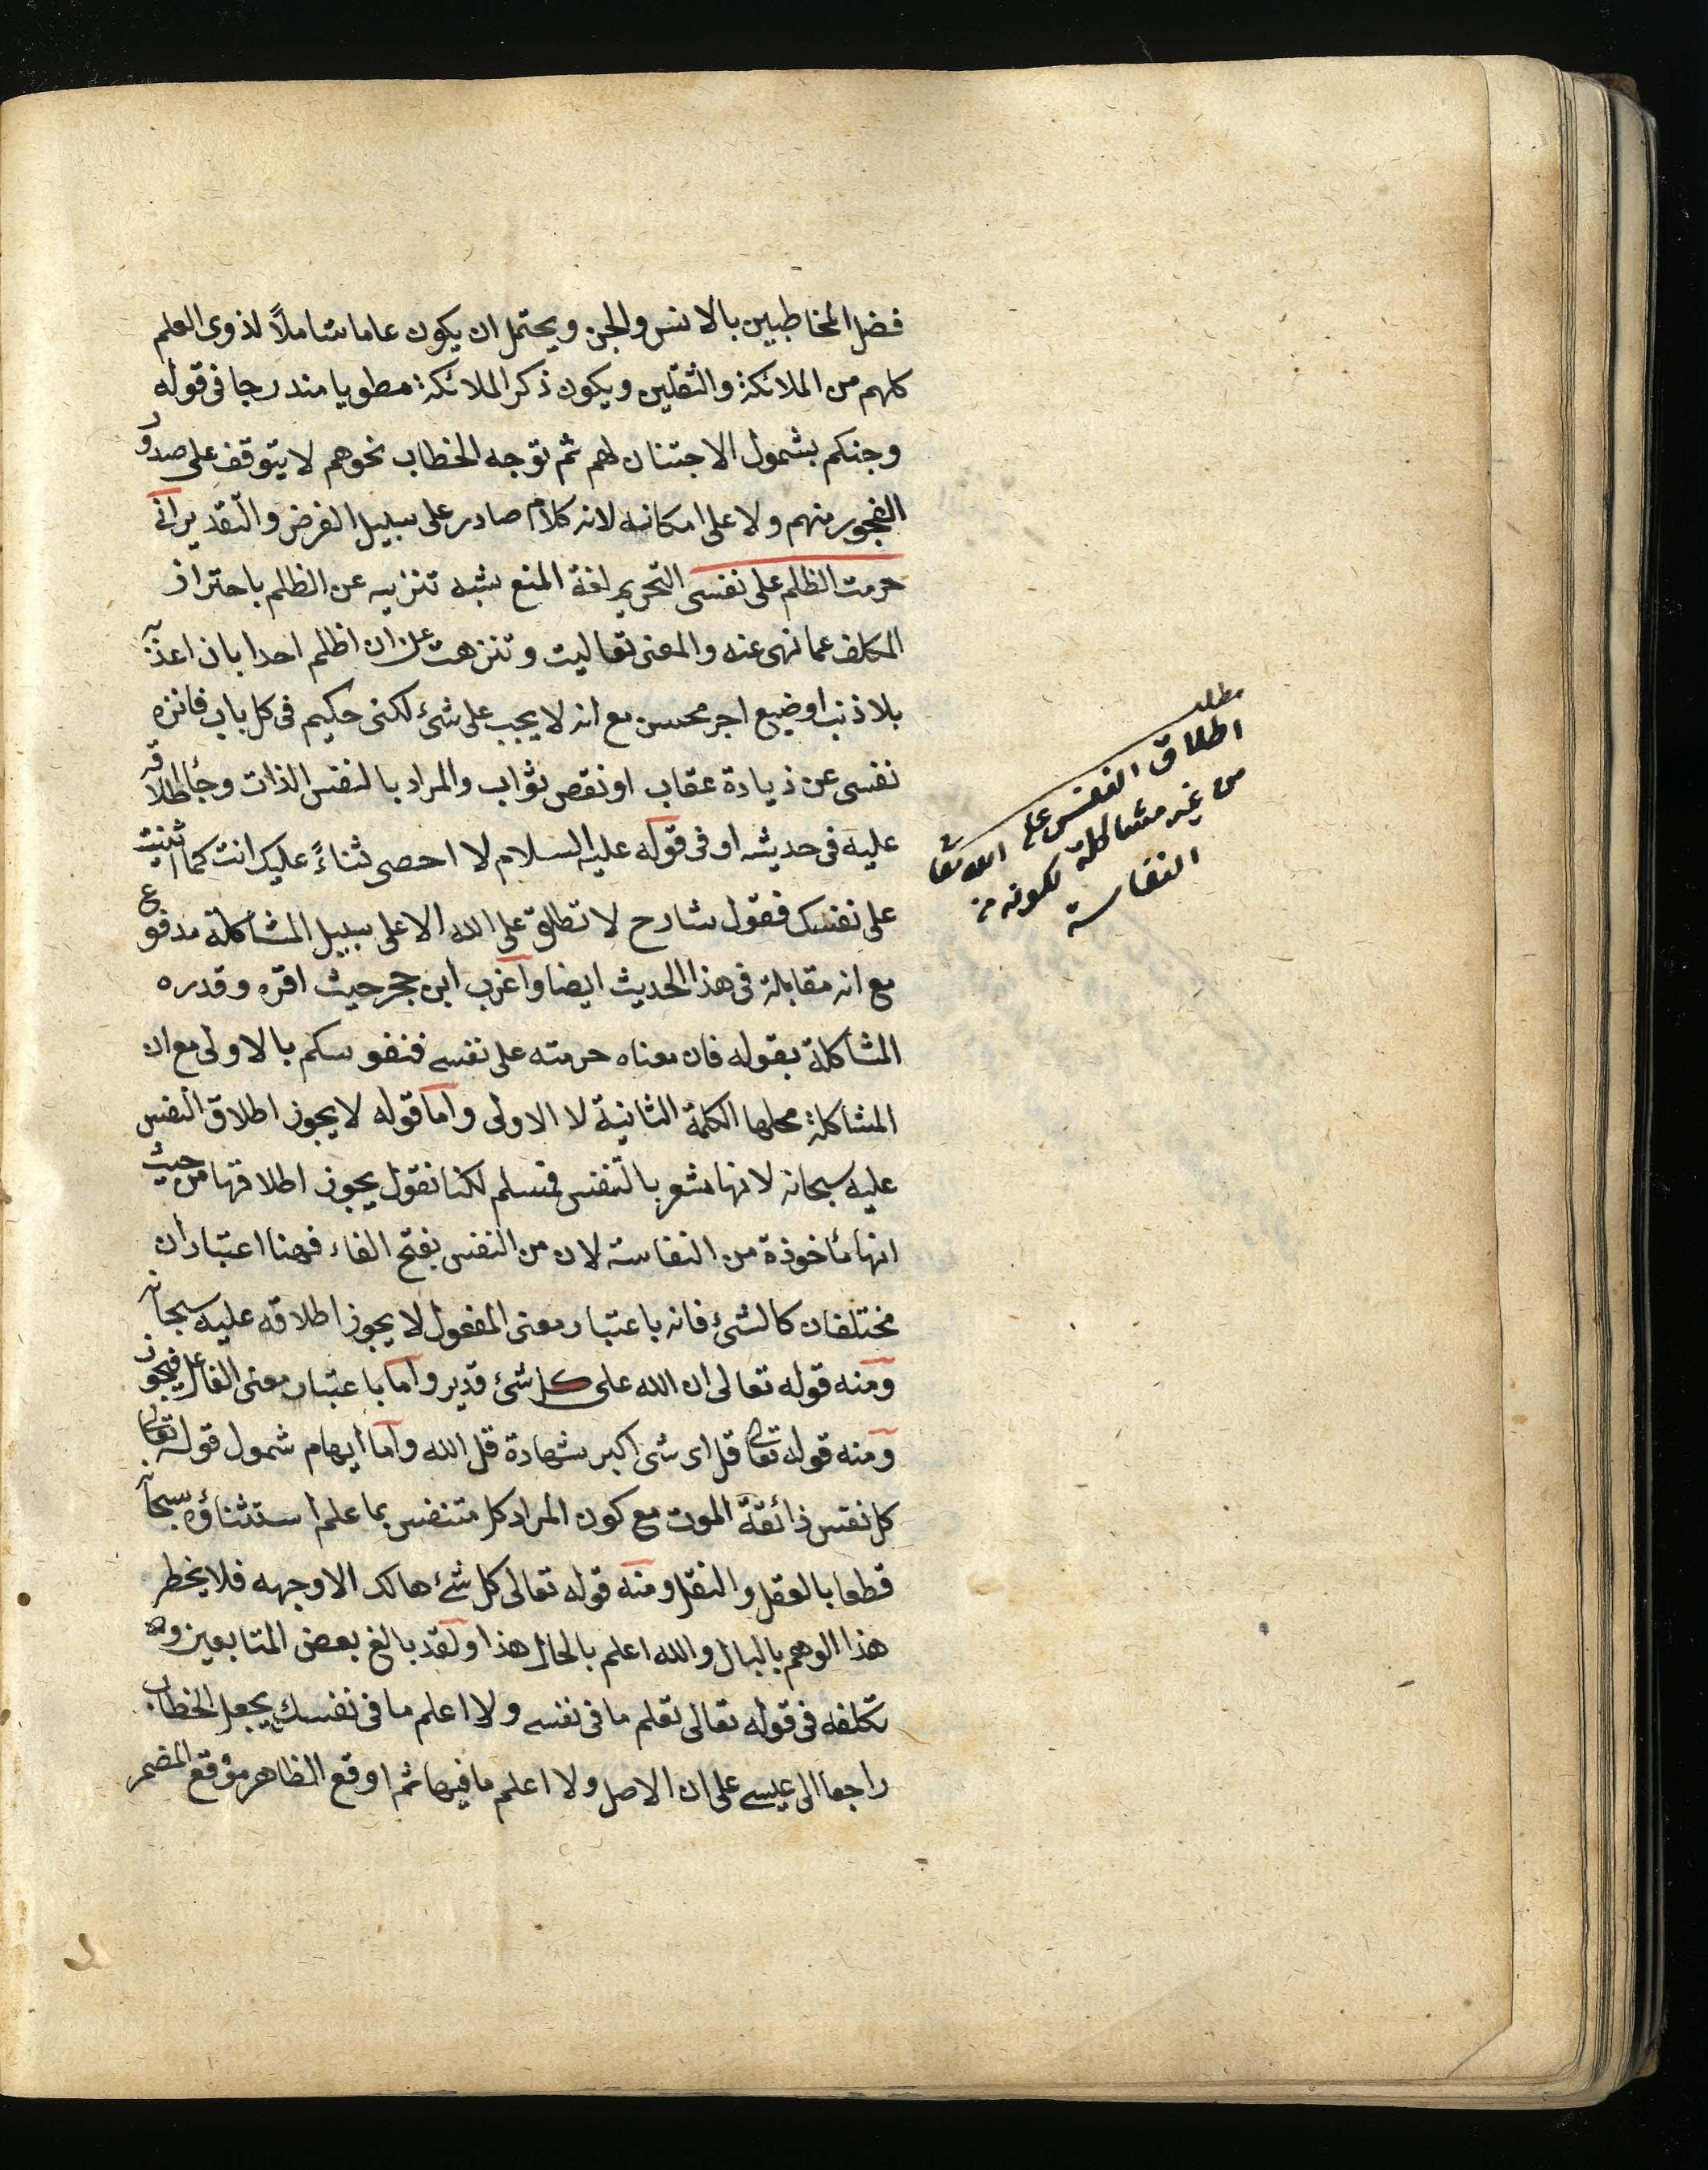 فضل المخاطبين بالانس والجن ويحتمل ان يكون عاما شاملاً لذوى العلم
كلهم من الملائكة والثقلين ويكون ذكر الملائكة مطويا مندرجا فى قوله
وجنكم بشمول الاجتنان لهم ثم توجه الخطاب نحوهم لا يتوقف على صدور
الفجور منهم ولا على امكانه لانه كلام صادر على سبيل الفرض والتقدير انى
حرمت الظلم على نفسى التحريم لغة المنع شبه تنزيه عن الظلم باحتراز
المكلف عما نهى عنه والمعنى تعاليت وتنزهت عن ان اظلم احدا بان اعذبه
بلا ذنب اوضيع اجر محسن مع انه لا يجب على شئ لكنى حكيم فى كل باب فانزه
نفسى عن زيادة عقاب او نقص ثواب والمراد بالنفس الذات وجأ اطلاقه
عليه فى حديثه او فى قوله عليه السلام لا احصى ثناءً عليك انت كما اثنيت
على نفسك فقول شارح لا تطلق على الله الا على سبيل المشاكلة مدفوع
مع انه مقابلة فى هذا الحديث ايضا واغرب ابن حجر حيث اقره وقدره
المشاكلة بقوله فان معناه حرمته على نفسى فنفوسكم بالاولى مع ان
المشاكلة محلها الكلمة الثانية لا الاولى واما قوله لا يجوز اطلاق النفس
عليه سبحانه لانها مشعر بالتنفس فمسلم لكنا نقول يجوز اطلاقها من حيث
انها مأخوذة من النفاسة لان من النفس بفتح الفاء فهنا اعتباران
مختلفان كالشئ فانه باعتبار معنى المفعول لا يجوز اطلاقه عليه سبحانه
ومنه قوله تعالى ان الله على كل شئ قدير واما باعتبار معنى الفاعل فيجوز
ومنه قوله تعالى قل اى شئ اكبر شهادة قل الله واما ايهام شمول قوله تعالى
كل نفس ذائقة الموت مع كون المراد كل متنفس بما علم استثناؤه سبحانه
قطعا بالعقل والنقل ومنه قوله تعالى كل شئ هالك الا وجهه فلا يخطر
هذا الوهم بالبال والله اعلم بالحال هذا ولقد بالغ بعض المتابعين
تكلفه فى قوله تعالى تعلم ما فى نفسى ولا اعلم ما فى نفسك يجعل الخطاب
راجعا الى عيسى على ان الاصل ولا اعلم ما فيها ثم اوقع الظاهر موقع المضمر
مطلب
اطلاق النفس على الله تعا
من غير مشاكلة لكونه من
النفاسة